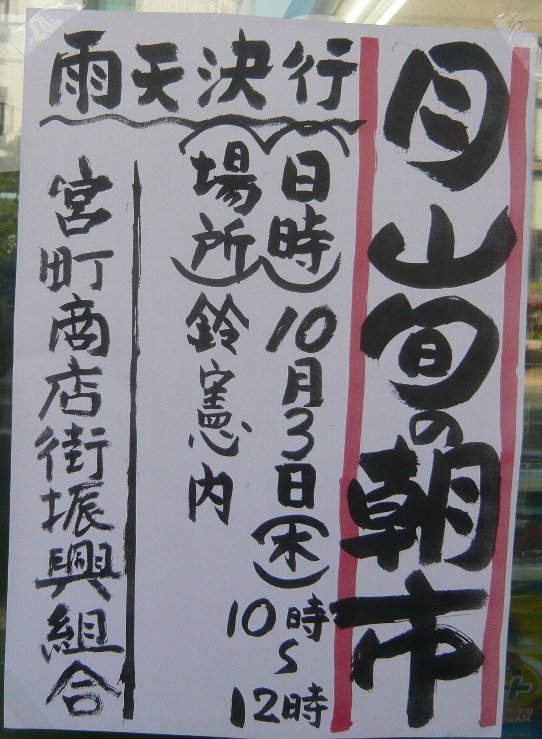 月山旬の朝市
雨天決行
(日時)10月3日(木)
10時~12時
(場所)鈴憲内
宮町商店街振興組合